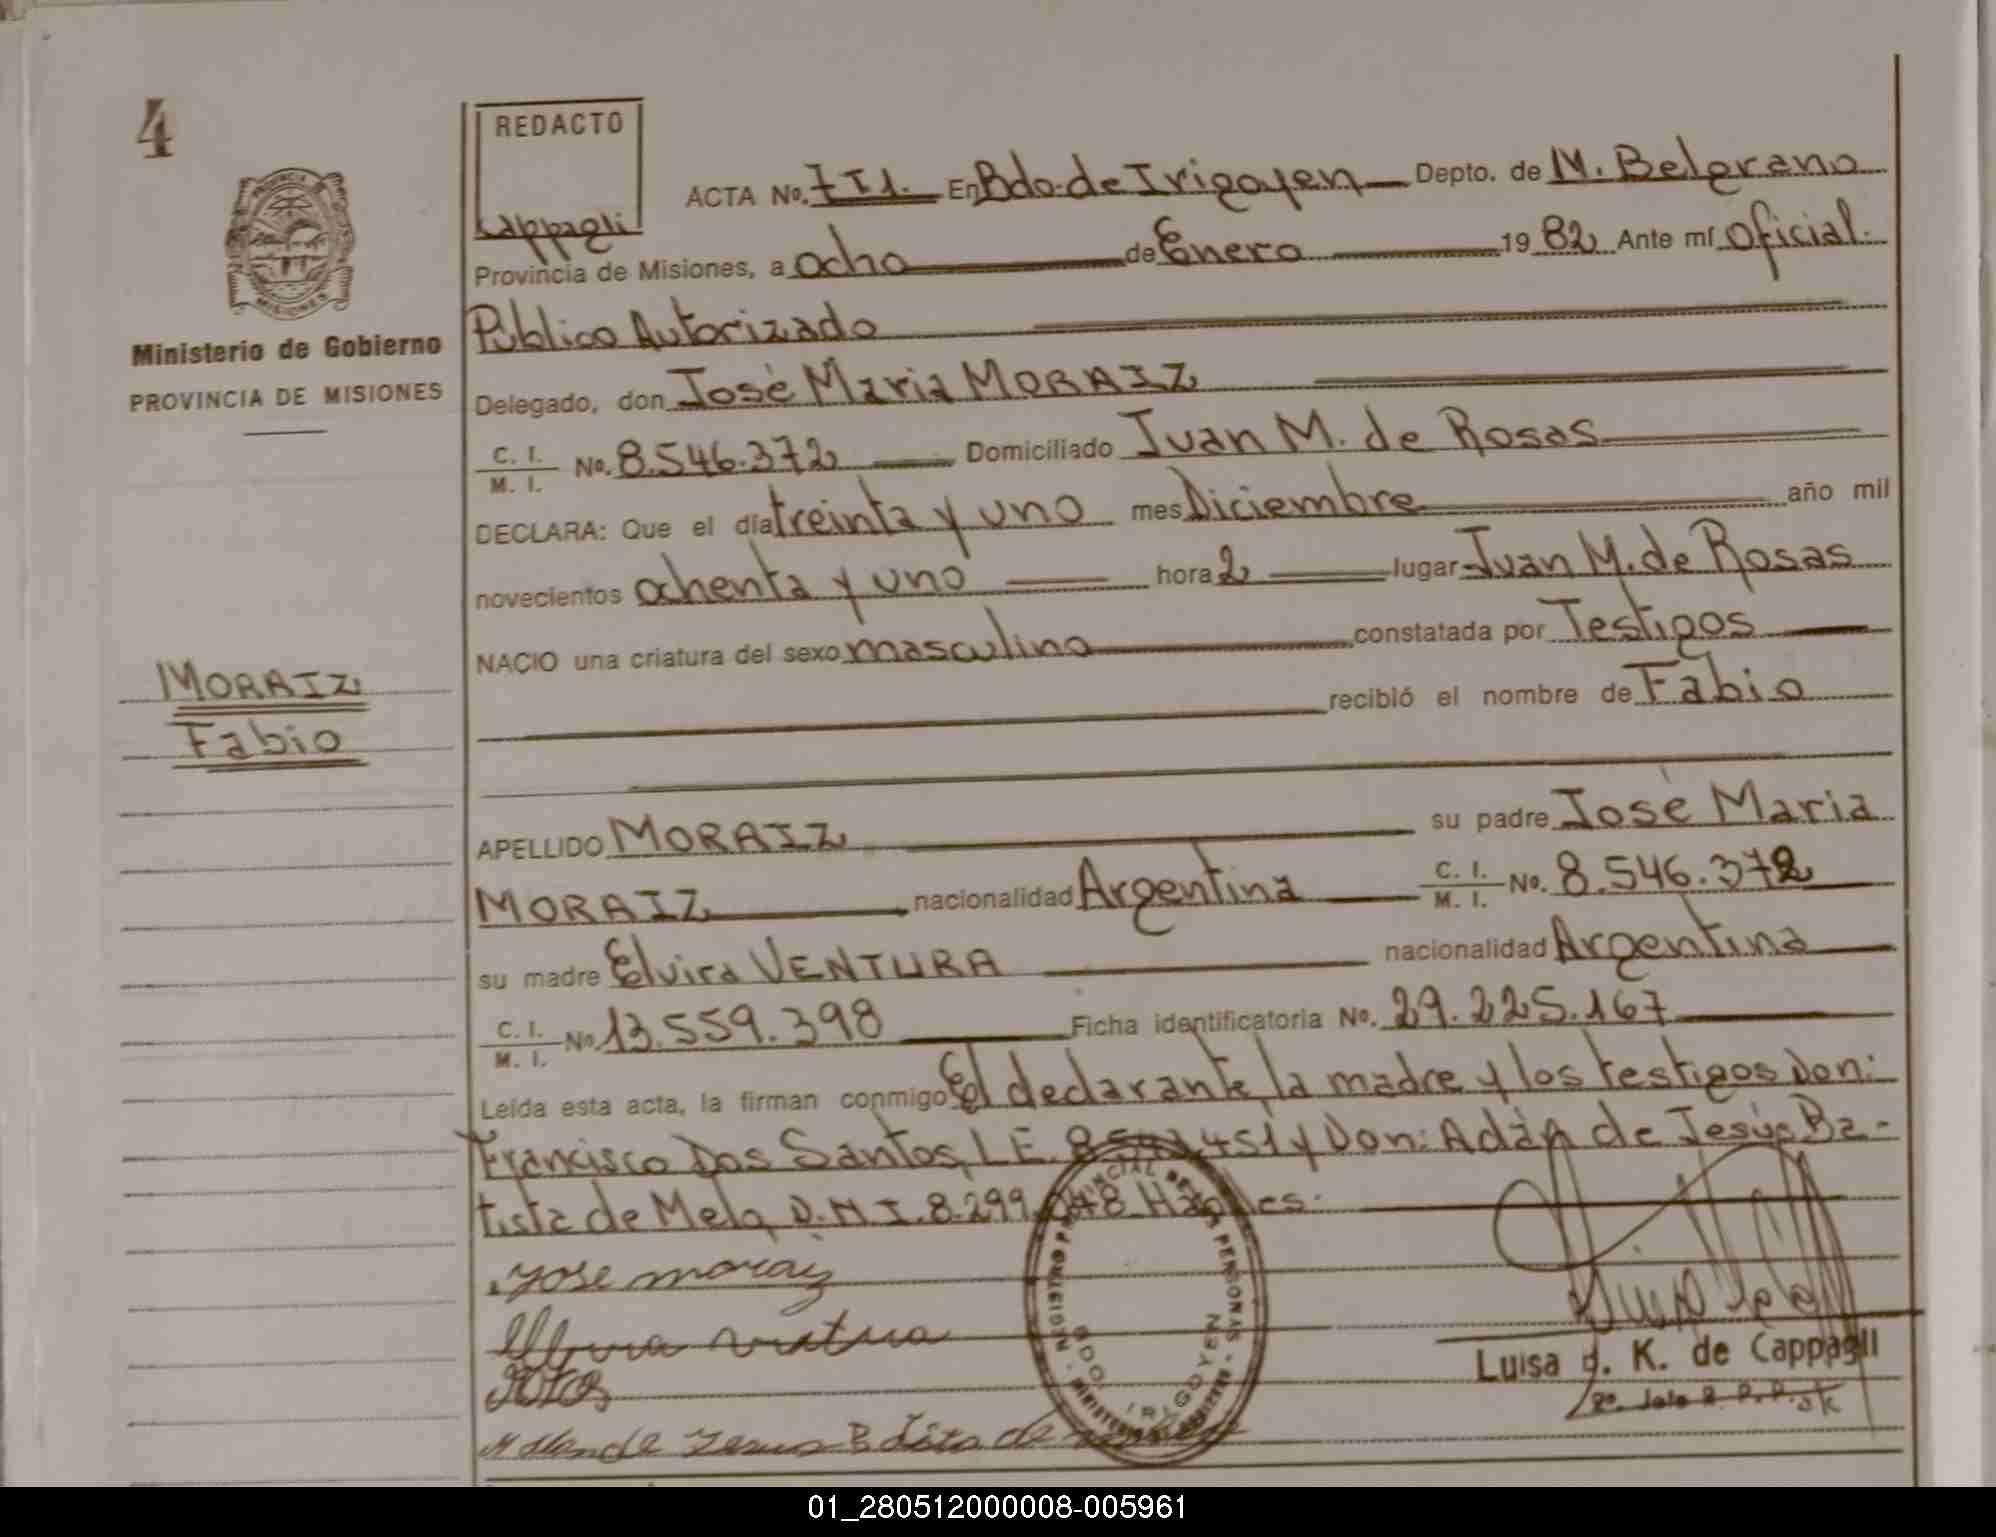 4
REDACTO
Cappagli
PROVINCIA DE
MISIONES
Ministerio de Gobierno
PROVINCIA DE MISIONES
MORAIZ
Fabio
ACTA No. 7 I 1. En Bdo. de Irigoyen Depto. de M. Belgrano
Provincia de Misiones, a ocho de Enero 1982 Ante mí Oficial
Público Autorizado
Delegado, don José Maria MORAIZ
C. I. / M. I. No. 8.546.372 Domiciliado Juan M. de Rosas
DECLARA: Que el día treinta y uno mes Diciembre año mil
novecientos ochenta y uno hora 2 lugar Juan M. de Rosas
NACIO una criatura del sexo masculino constatada por Testigos
recibió el nombre de Fabio
APELLIDO MORAIZ su padre José Maria
MORAIZ nacionalidad Argentina C. I. / M. I. No. 8.546.372
su madre Elvira VENTURA nacionalidad Argentina
C. I. / M. I. No. 13.559.398 Ficha identificatoria No. 29.225.167
Leída esta acta, la firman conmigo El declarante, la madre y los testigos Don:
Francisco Dos Santos, L.E. y Don: Adán de Jesús Ba-
tista de Melo, D.N.I. 8.299.048 Hábiles.
Jose moraiz
Luisa J. K. de Cappagli
BDO. IRIGOYEN
01_280512000008-005961